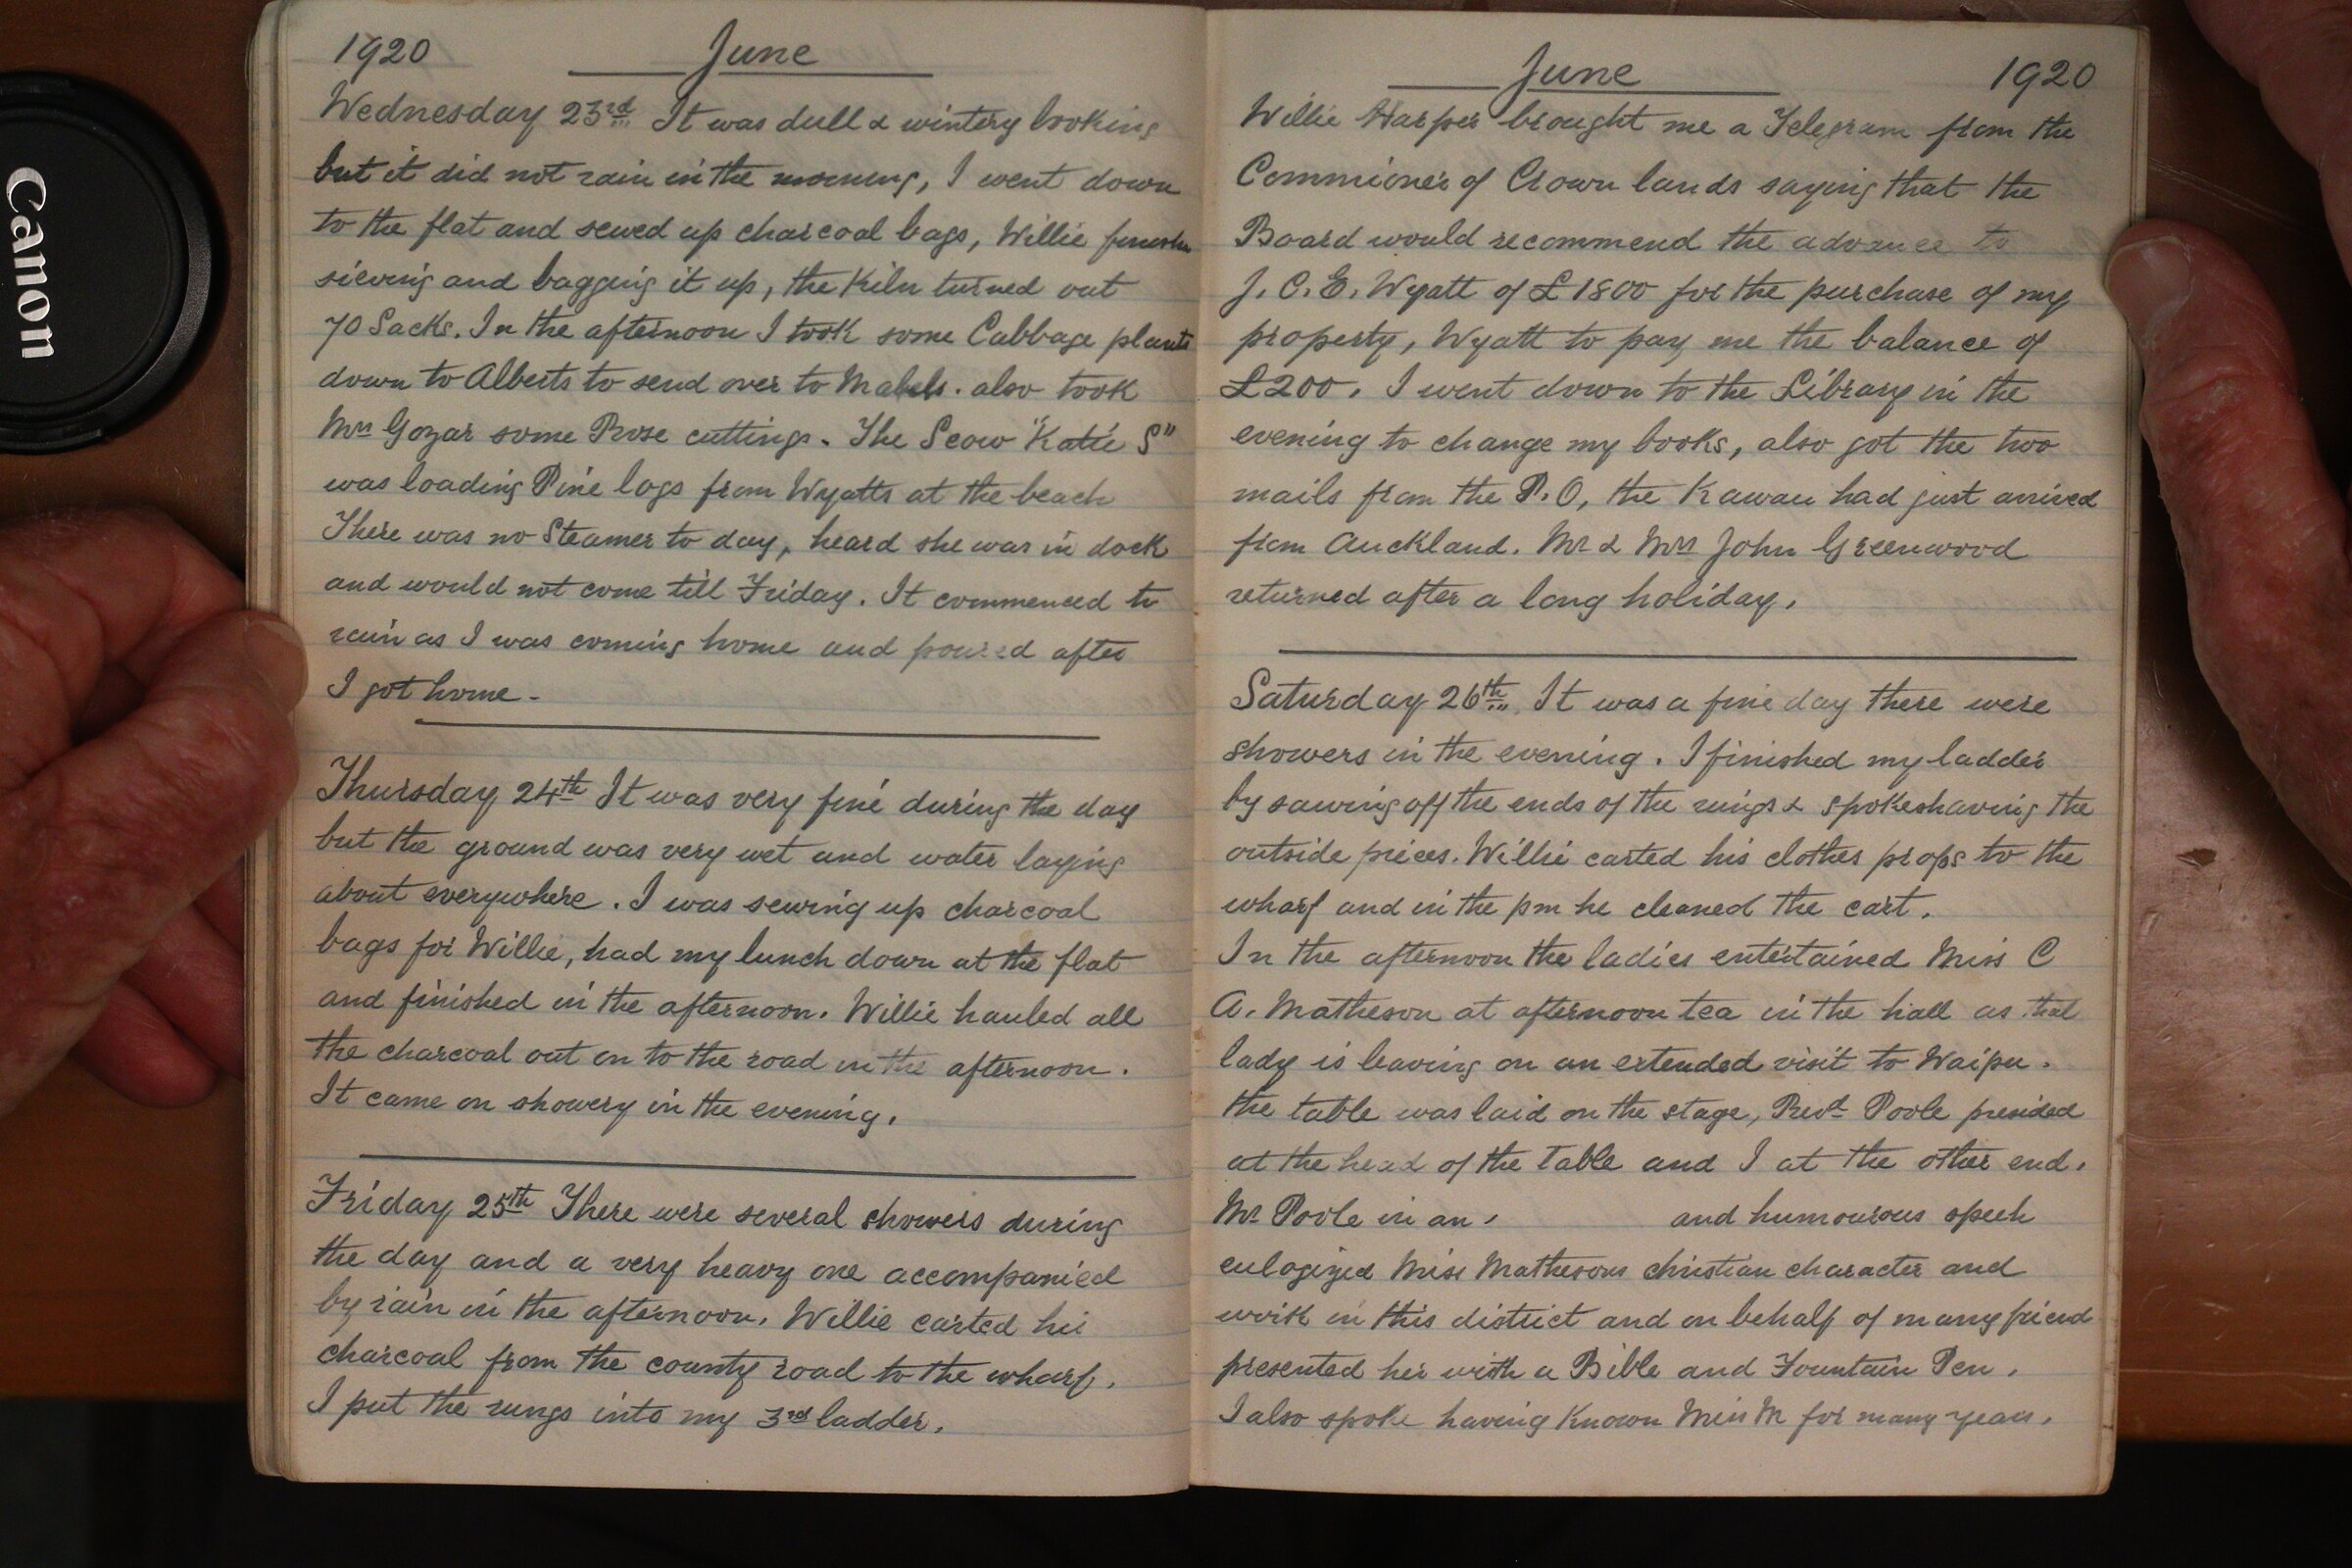 Canon
1920 June
Wednesday 23rd It was dull & wintery looking
but it did not rain in the morning, I went down
to the flat and sewed up charcoal bags, Willie
sieving and bagging it up, the Kiln turned out
70 Sacks. In the afternoon I took some Cabbage plants
down to Alberts to send over to Mabels. also took
Mrs Gozar some Rose cuttings. The Scow "Katie S"
was loading Pine logs from Wyatts at the beach
There was no Steamer to day, heard she was in dock
and would not come till Friday. It commenced to
rain as I was coming home and poured after
I got home -
Thursday 24th It was very fine during the day
but the ground was very wet and water laying
about everywhere. I was sewing up charcoal
bags for Willie, had my lunch down at the flat
and finished in the afternoon. Willie hauled all
the charcoal out on to the road in the afternoon.
It came on showery in the evening.
Friday 25th There were several showers during
the day and a very heavy one accompanied
by rain in the afternoon. Willie carted his
charcoal from the county road to the wharf.
I put the rungs into my 3rd ladder.
June 1920
Willie Harper brought me a Telegram from the
Commioner of Crown lands saying that the
Board would recommend the advance to
J. C. E. Wyatt of £1800 for the purchase of my
property, Wyatt to pay me the balance of
£200. I went down to the Library in the
evening to change my books, also got the two
mails from the P.O, the Kawau had just arrived
from Auckland. Mr & Mrs John Greenwood
returned after a long holiday.
Saturday 26th. It was a fine day there were
showers in the evening. I finished my ladder
by sawing off the ends of the rungs & spokeshaving the
outside pieces. Willie carted his clothes props to the
wharf and in the pm he cleaned the cart.
In the afternoon the ladies entertained Miss C
A. Matheson at afternoon tea in the hall as that
lady is leaving on an extended visit to Waipu.
the table was laid on the stage, Revd Poole presided
at the head of the Table and I at the other end.
Mr Poole in an, and humourous speeh
eulogized Miss Mathesons christian character and
work in this district and on behalf of many friend
presented her with a Bible and Fountain Pen.
I also spoke having Known Miss M for many years.